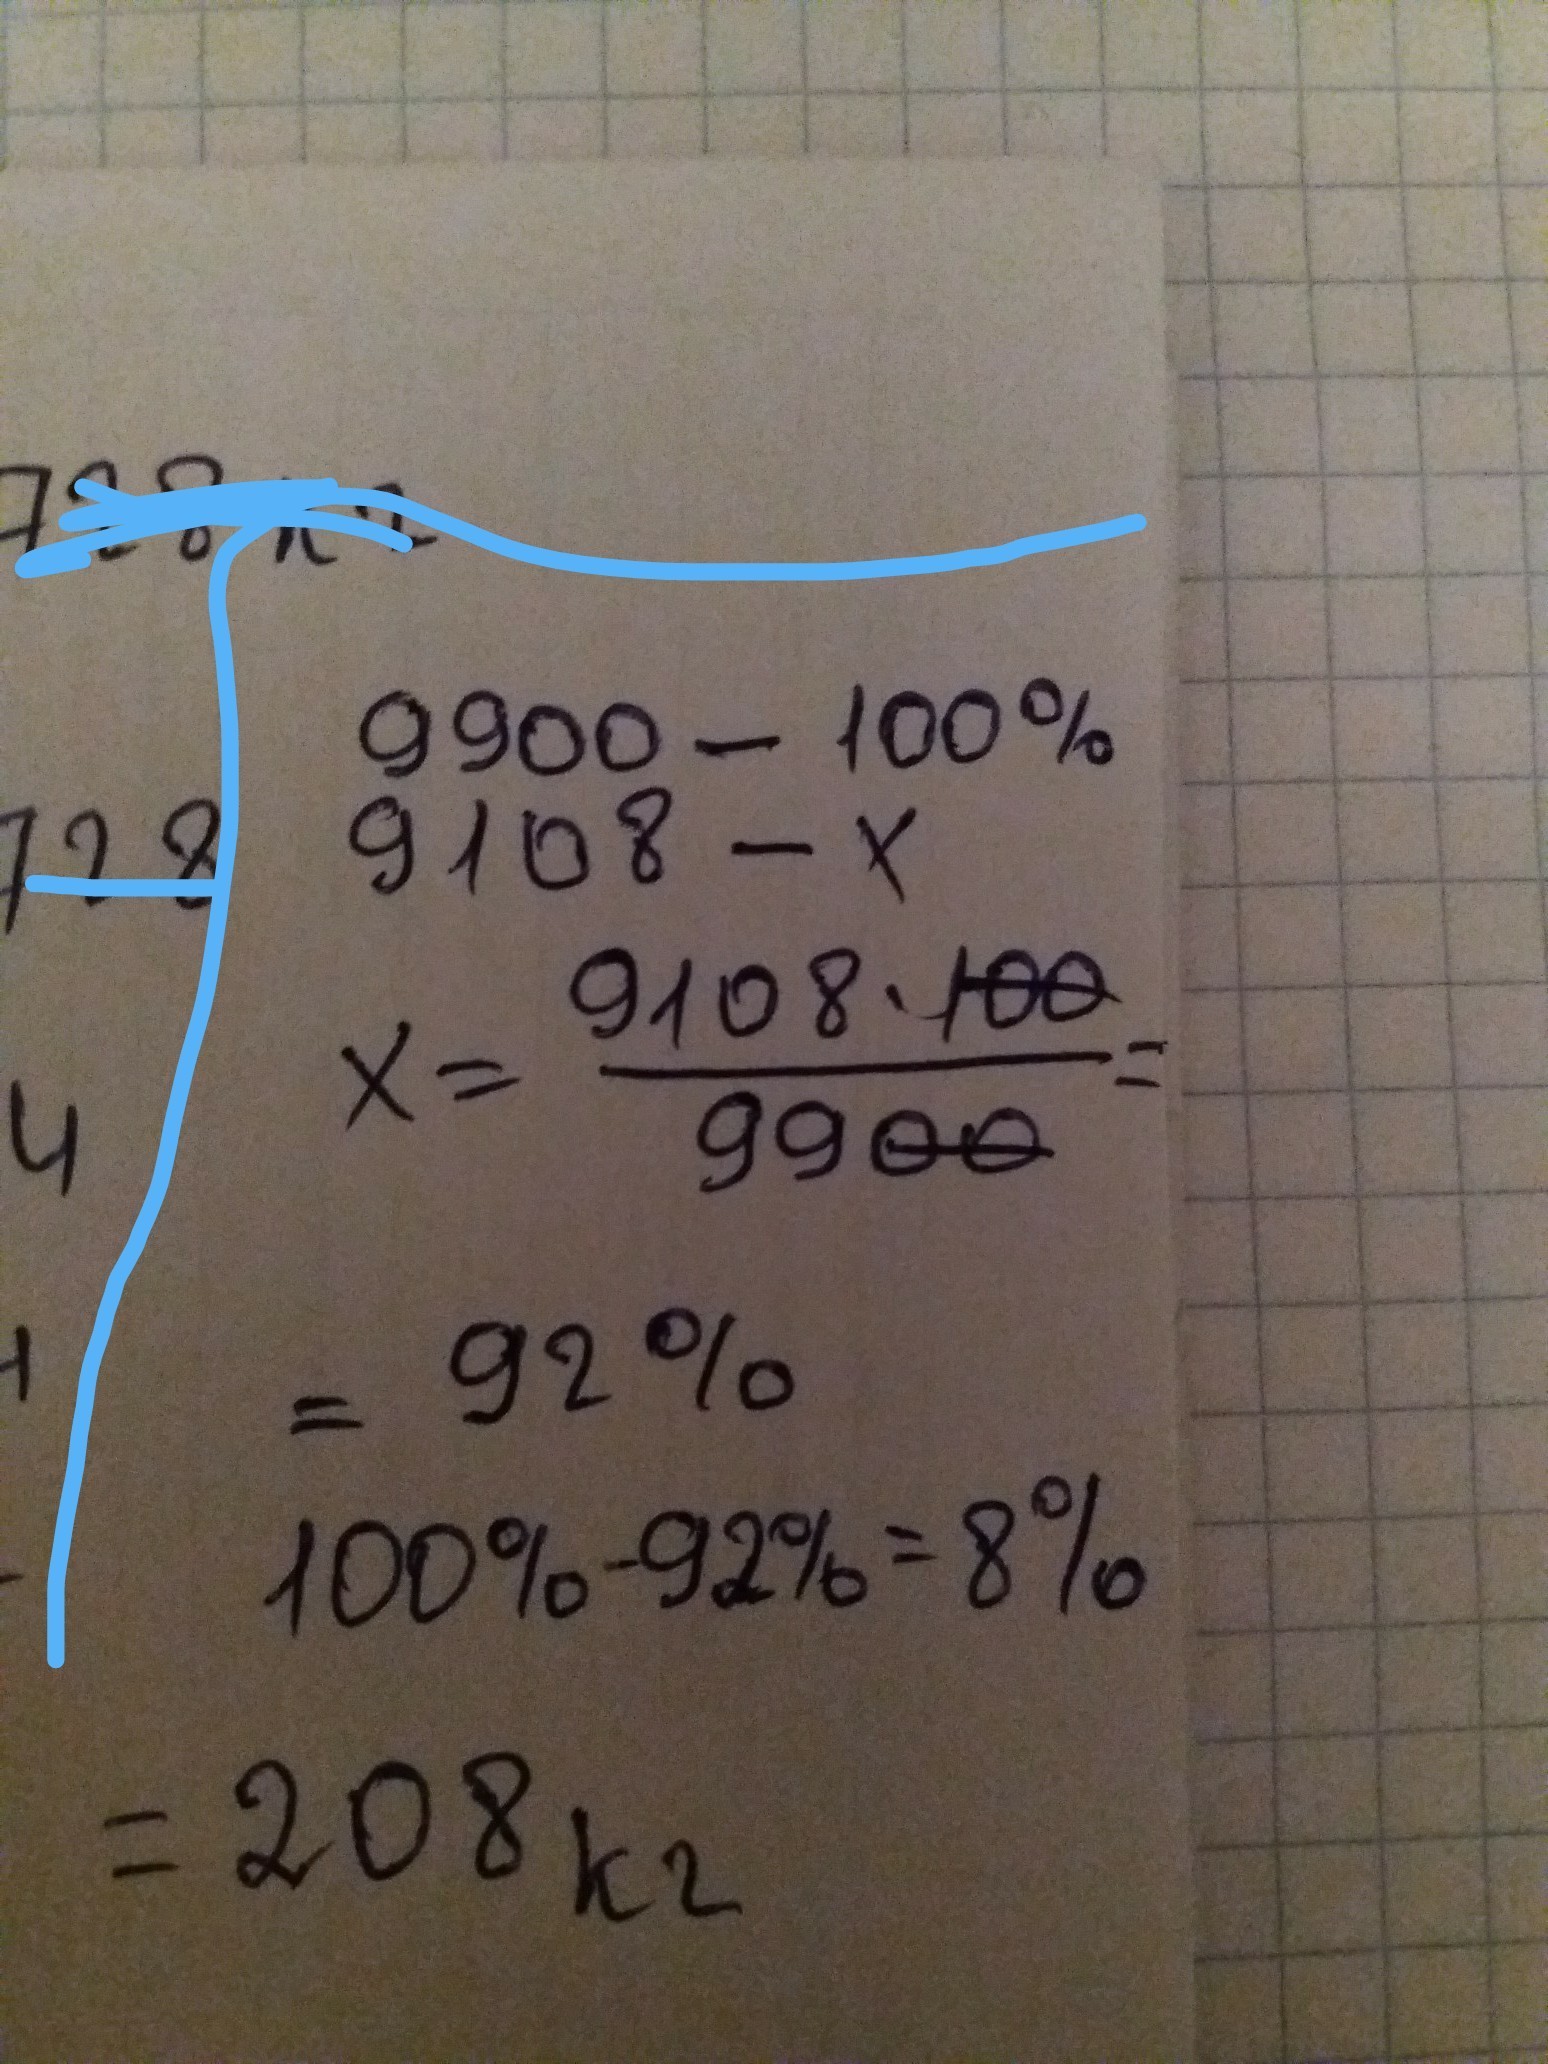 728 кг
9900 – 100%
728
9108 – x
x = 9108 · 100 / 9900 =
4
= 92%
100% - 92% = 8%
= 208 кг